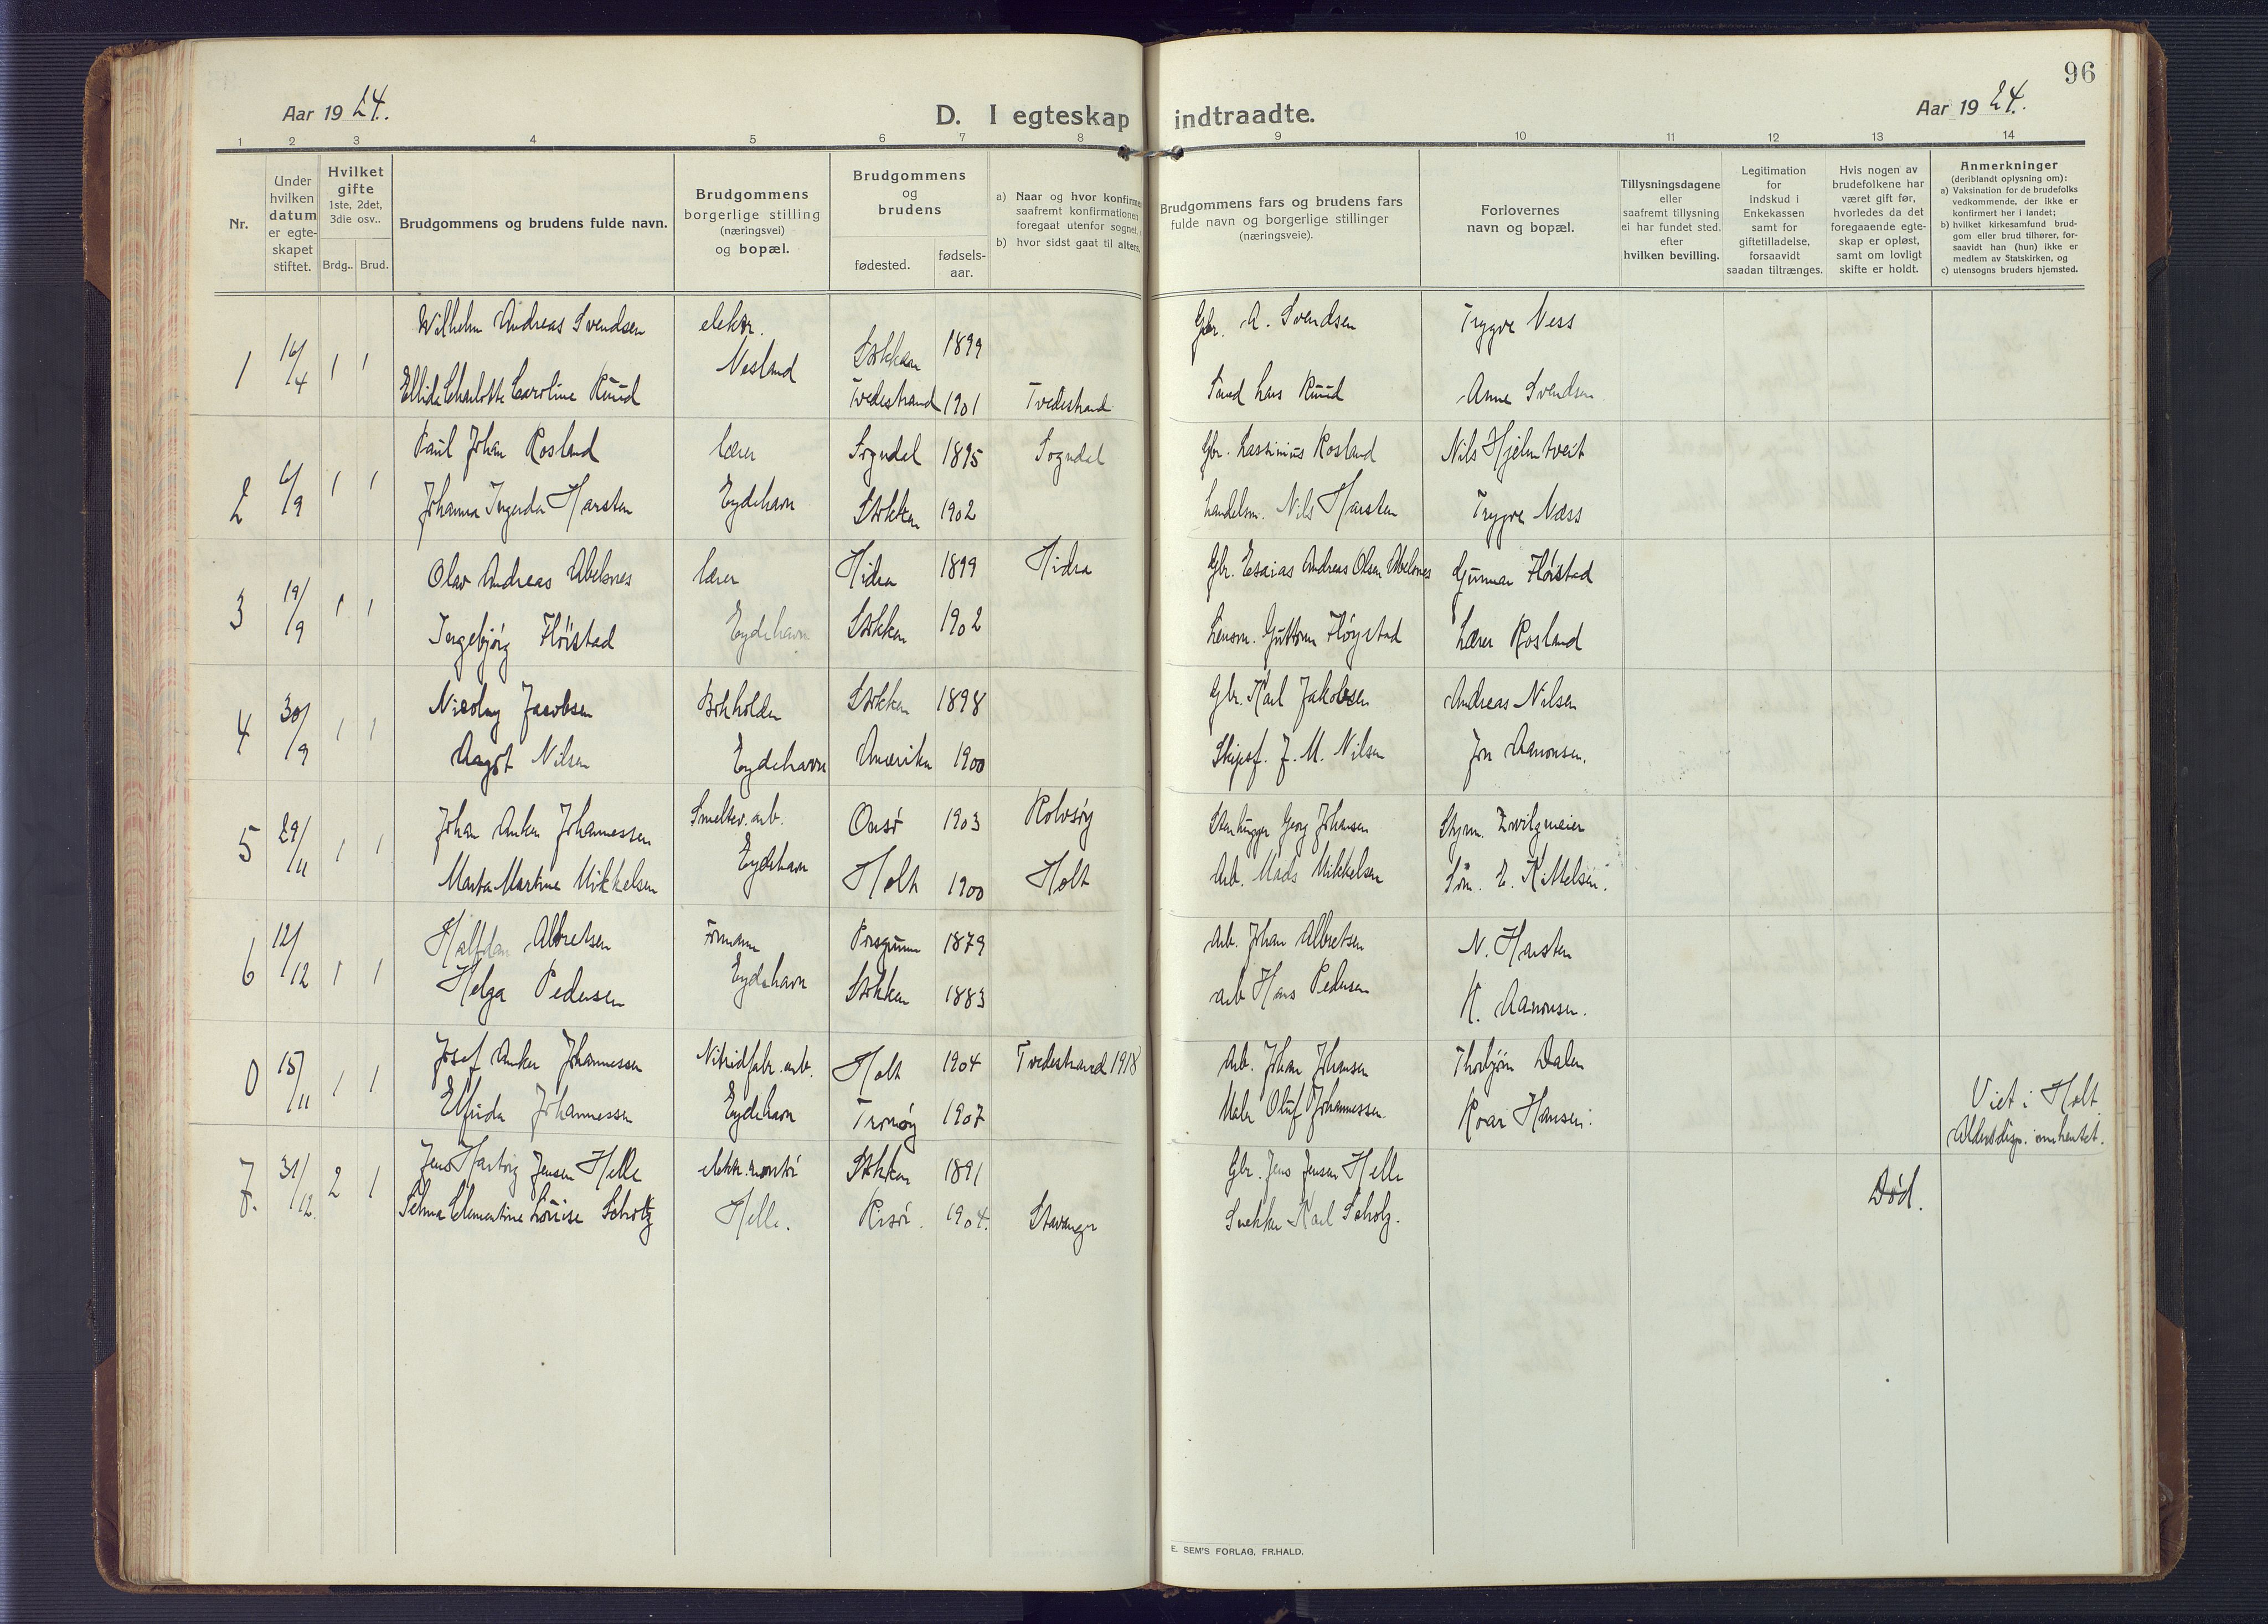 96
Aar 19 24.
D. I egteskap indtraadte.
Aar 19 24.
1 2 3 4 5 6 7 8 9 10 11 12 13 14
Nr.
Under hvilken datum er egteskapet stiftet.
Hvilket gifte 1ste, 2det, 3die osv..
Brdg.. Brud.
Brudgommens og brudens fulde navn.
Brudgommens borgerlige stilling (næringsvei) og bopæl.
Brudgommens og brudens
fødested. fødsels-aar.
a) Naar og hvor konfirme
saafremt konfirmationen
foregaat utenfor sognet,
b) hvor sidst gaat til alters.
Brudgommens fars og brudens fars fulde navn og borgerlige stillinger (næringsveie).
Forlovernes navn og bopæl.
Tillysningsdagene eller saafremt tillysning ei har fundet sted. efter hvilken bevilling.
Legitimation for indskud i Enkekassen samt for giftetilladelse, forsaavidt saadan tiltrænges.
Hvis nogen av brudefolkene har været gift før, hvorledes da det foregaaende egteskap er opløst, samt om lovligt skifte er holdt.
Anmerkninger
(deriblandt oplysning om):
a) Vaksination for de brudefolks vedkommende, der ikke er konfirmert her i landet;
b) hvilket kirkesamfund brudgom eller brud tilhører, forsaavidt han (hun) ikke er medlem av Statskirken, og
c) utensogns bruders hjemsted.
1 16/4 1 1 Wilhelm Andreas Svendsen elektr. Nesland Stokken 1899 Gbr. A. Svendsen Trygve Ness
Ellida Charlotte Caroline Ruud Tvedestrand 1901 Tvedestrand Lars Ruud Anne Svendsen
2 6/9 1 1 Paul Johan Rosland lærer Sogndal 1895 Sogndal Gbr. Rosland Nils Hjelmtveit
Johanna Ingerda Harsten Eydehavn Stokken 1902 handelsm. Nils Harsten Trygve Næss
3 19/9 1 1 Olav Andreas Abelsnes lærer Hidra 1899 Hidra Gbr. Esaias Andreas Olsen Abelsnes Gunnar Fløistad
Ingebjørg Fløistad Eydehavn Stokken 1902 Lensm. Guttorm Fløystad Lærer Rosland
4 30/9 1 1 Nicolay Jacobsen Bokholder Stokken 1898 Gbr. Karl Jakobsen Andreas Nilsen
Aagot Nilsen Eydehavn Amerika 1900 Skipsf. J. M. Nilsen Jon Aanonsen.
5 29/11 1 1 Johan Anker Johannessen Smeltev. arb. Onsø 1903 Rolvsøy Stenhugger Georg Johansen Zwilgmeier
Marta Martine Mikkelsen Eydehavn Holt 1900 Holt Arb. Mads Mikkelsen E. Kittelsen.
6 12/12 1 1 Halfdan Albretsen Formann Porsgrunn 1879 Arb. Johan Albretsen N. Harsten
Helga Pedersen Eydehavn Stokken 1883 arb Hans Pedersen K. Aanonsen.
0 15/11 1 1 Josef Anker Johannessen Nitridfabr. arb. Holt 1904 Tvedestrand 1918 Arb. Johan Johansen Thorbjørn Dalen
Elfrida Johannessen Eydehavn Tromøy 1907 Maler Oluf Johannessen. Roar Hansen. Viet i Holt
Aldersdisp. innhentet.
7. 31/12. 2 1 Jens Hartvig Jensen Helle elektr. montør Stokken 1891 Gbr. Jens Jensen Helle Død.
Selma Clementine Louise Scholtz Helle. Risør. 1904. Stavanger Snekker Karl Scholz.
E. SEM'S FORLAG, FR.HALD.